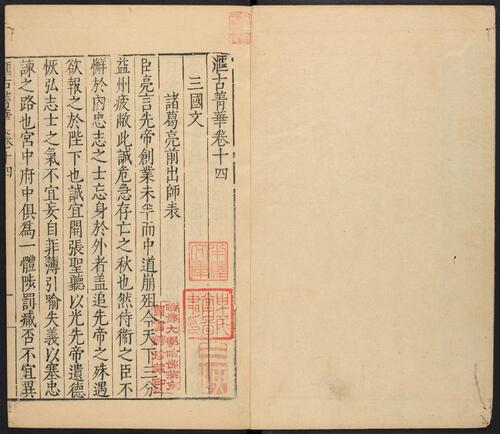 滙古菁華卷十四
三國文
諸葛亮前出師表
臣亮言先帝創業未半而中道崩殂今天下三分
益州疲敝此誠危急存亡之秋也然侍衛之臣不
懈於內忠志之士忘身於外者盖追先帝之殊遇
欲報之於陛下也誠宜開張聖聽以光先帝遺德
恢弘志士之氣不宜妄自菲薄引喻失義以塞忠
諫之路也宮中府中俱爲一體陟罰臧否不宜異
滙古菁華 卷十四 一